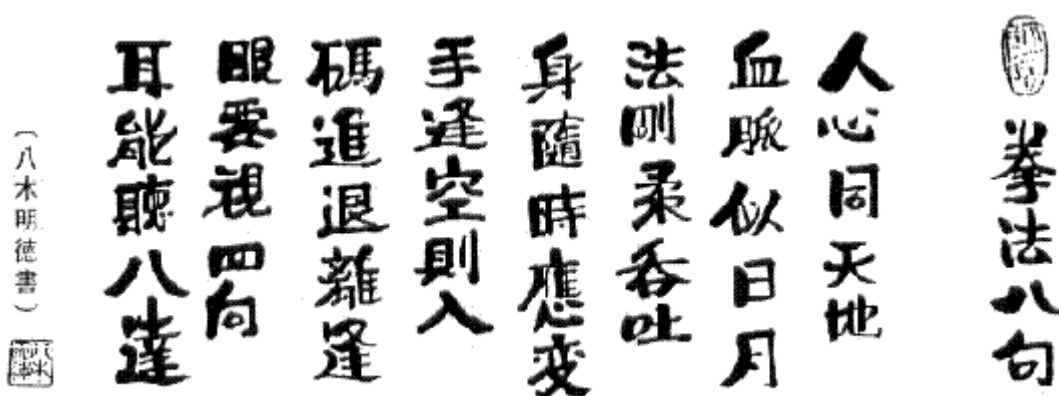 拳法八句
人心同天地
血脈似日月
法剛柔呑吐
身隨時應変
手逢空則入
碼進退離逢
眼要視四向
耳能聽八達
（八木明徳書）